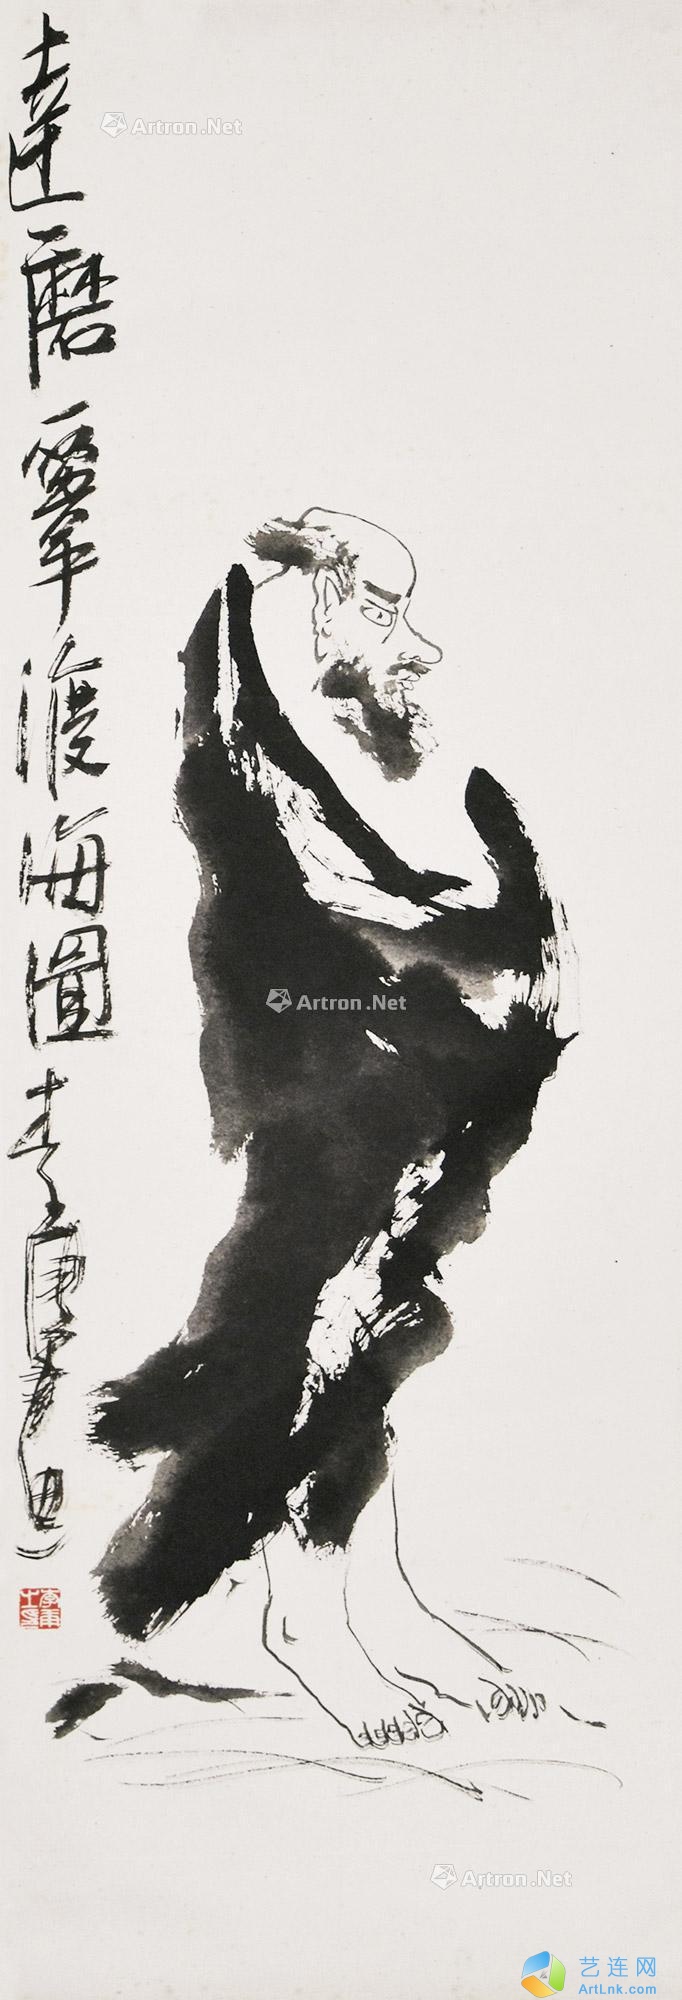 達磨 渡海圖 李庚畫
Artron.Net
Artron.Net
Artron.Net
艺连网
ArtLnk.com